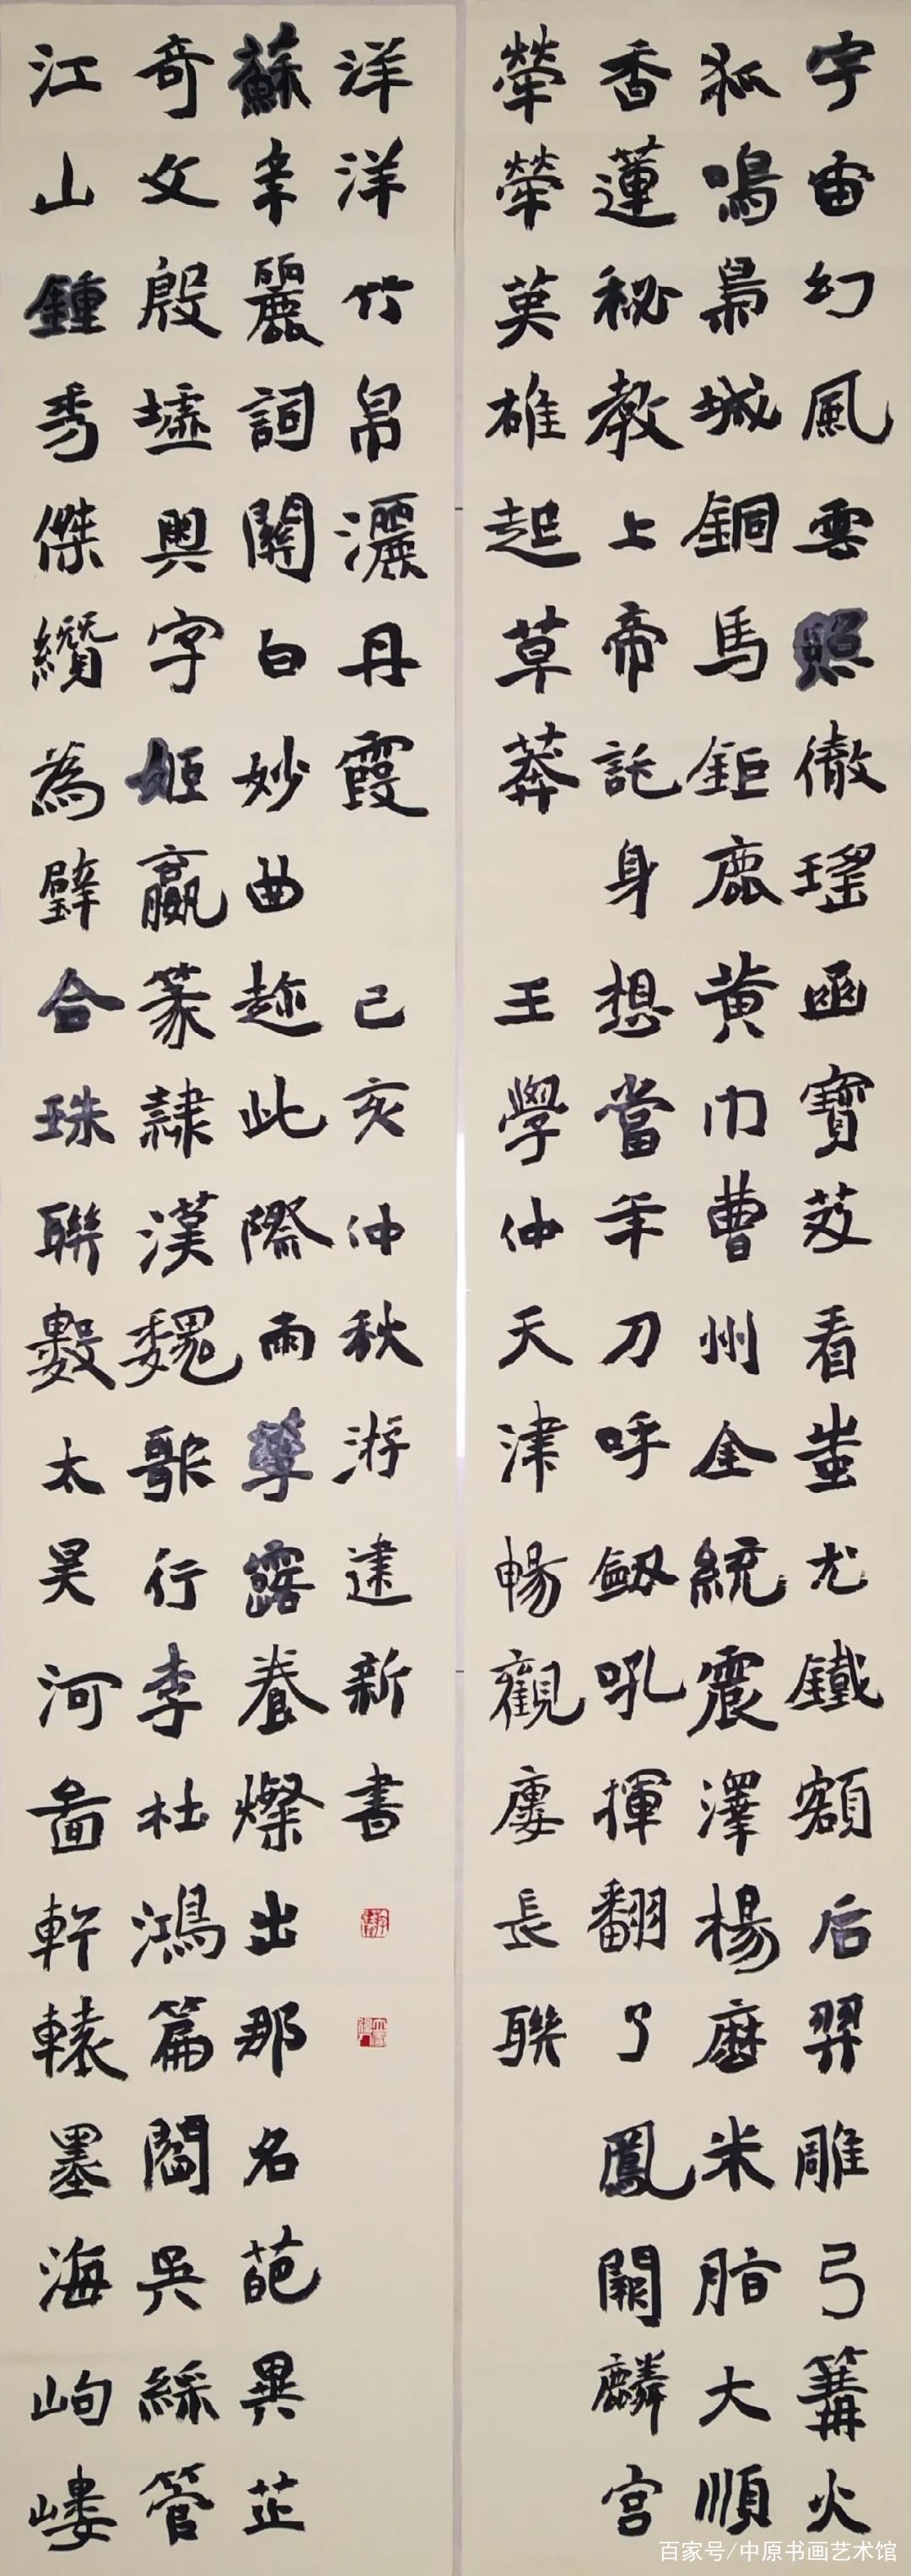 宇宙幻風雲照徹瑤函寶笈看蚩尤鐵額后羿雕弓篝火
狐鳴梟城銅馬鉅鹿黃巾曹州金統震澤楊麼米脂大順
香蓮秘教上帝託身想當年刀呼劔吼揮翻了鳳闕麟宮
犖犖英雄起草莽 王學仲天津暢觀廔長聯
江山鍾秀傑纘為璧合珠聯數太昊河圖軒轅墨海岣嶁
奇文殷墟奧字姬嬴篆隸漢魏歌行李杜鴻篇閻吳綵管
蘇辛麗詞關白妙曲趂此際雨露養燦出那名葩異芷
洋洋竹帛灑丹霞 己亥仲秋游建新書
百家号/中原书画艺术馆